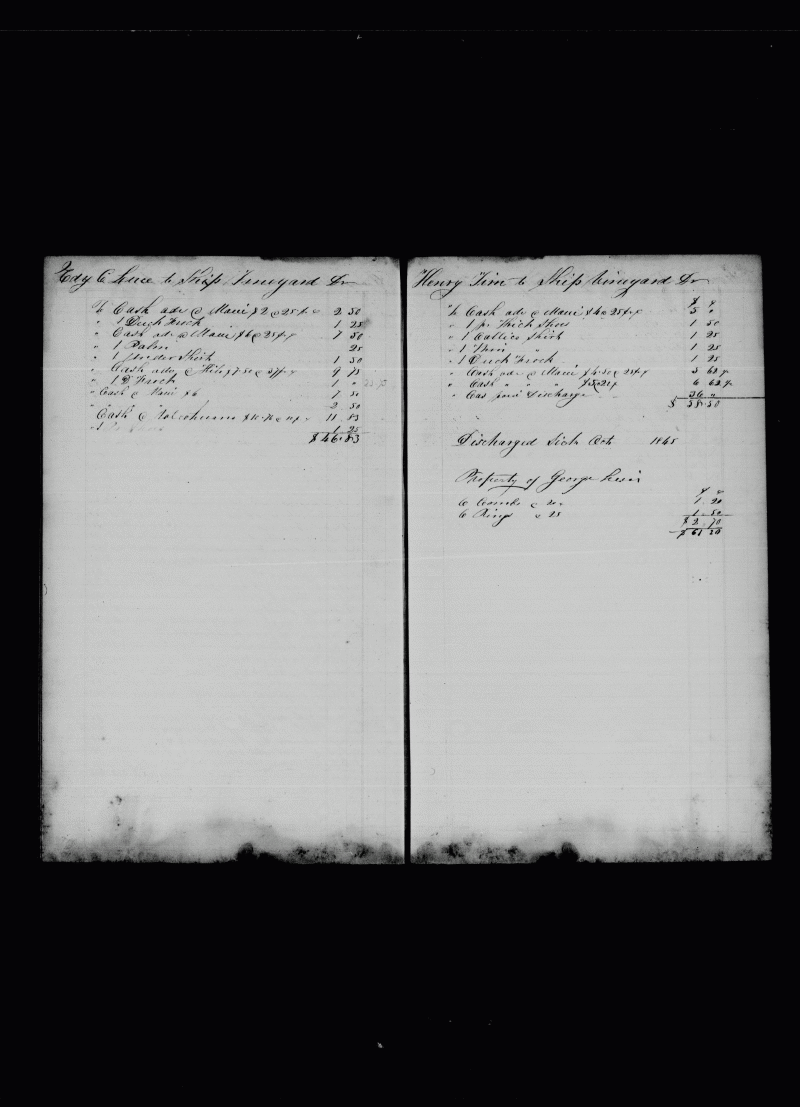 Edy C Luce to Ship Vineyard Dr
To Cash adv @ Maui $2 @ 25 pr c 2 50
" 1 Duck Frock 1 25
" Cash adv @ Maui $6 @ 25 pr 7 50
" 1 Palm 25
" 1 Under Shirt 1 50
" Cash adv @ Hilo $7.50 @ 9 75
" 1 D Frock 1 "
" Cash @ Maui $6 7 50
" " " 2 50
Cash @ 11 83
" 1 1 25
$46.83
Henry Tim to Ship Vineyard Dr
$ c
To Cash adv @ Maui $4 @ 25 pr 5 "
" 1 pr Thick Shoes 1 50
" 1 Callico Shirt 1 25
" 1 Thin " 1 25
" 1 Duck Frock 1 25
" Cash adv @ Maui $4.50 @ 25 pr 5 62
" Cash " " " $5 @ 6 62
" Cas paid Discharge 36 "
$ 58.50
Discharged Sick Oct 1845
Property of George
$ c
6 Combs @ 20 1 20
6 Rings @ 25 1 50
$ 2.70
$ 61 20